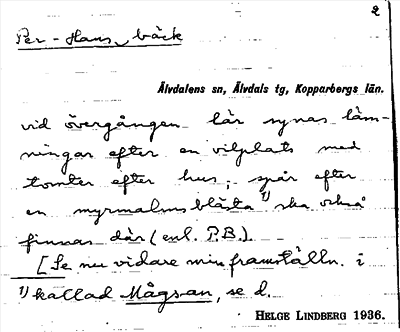 2
Per-Hans bäck
Älvdalens sn, Älvdals tg, Kopparbergs län.
vid övergången lär synas läm-
ningar efter en vilplats med
tomter efter hus, - spår efter
en myrmalmsblästa 1) ska också
finnas där (enl. P.B.)
[Se nu vidare min framställn. i
1) kallad Mågsan, se d.
HELGE LINDBERG 1936.